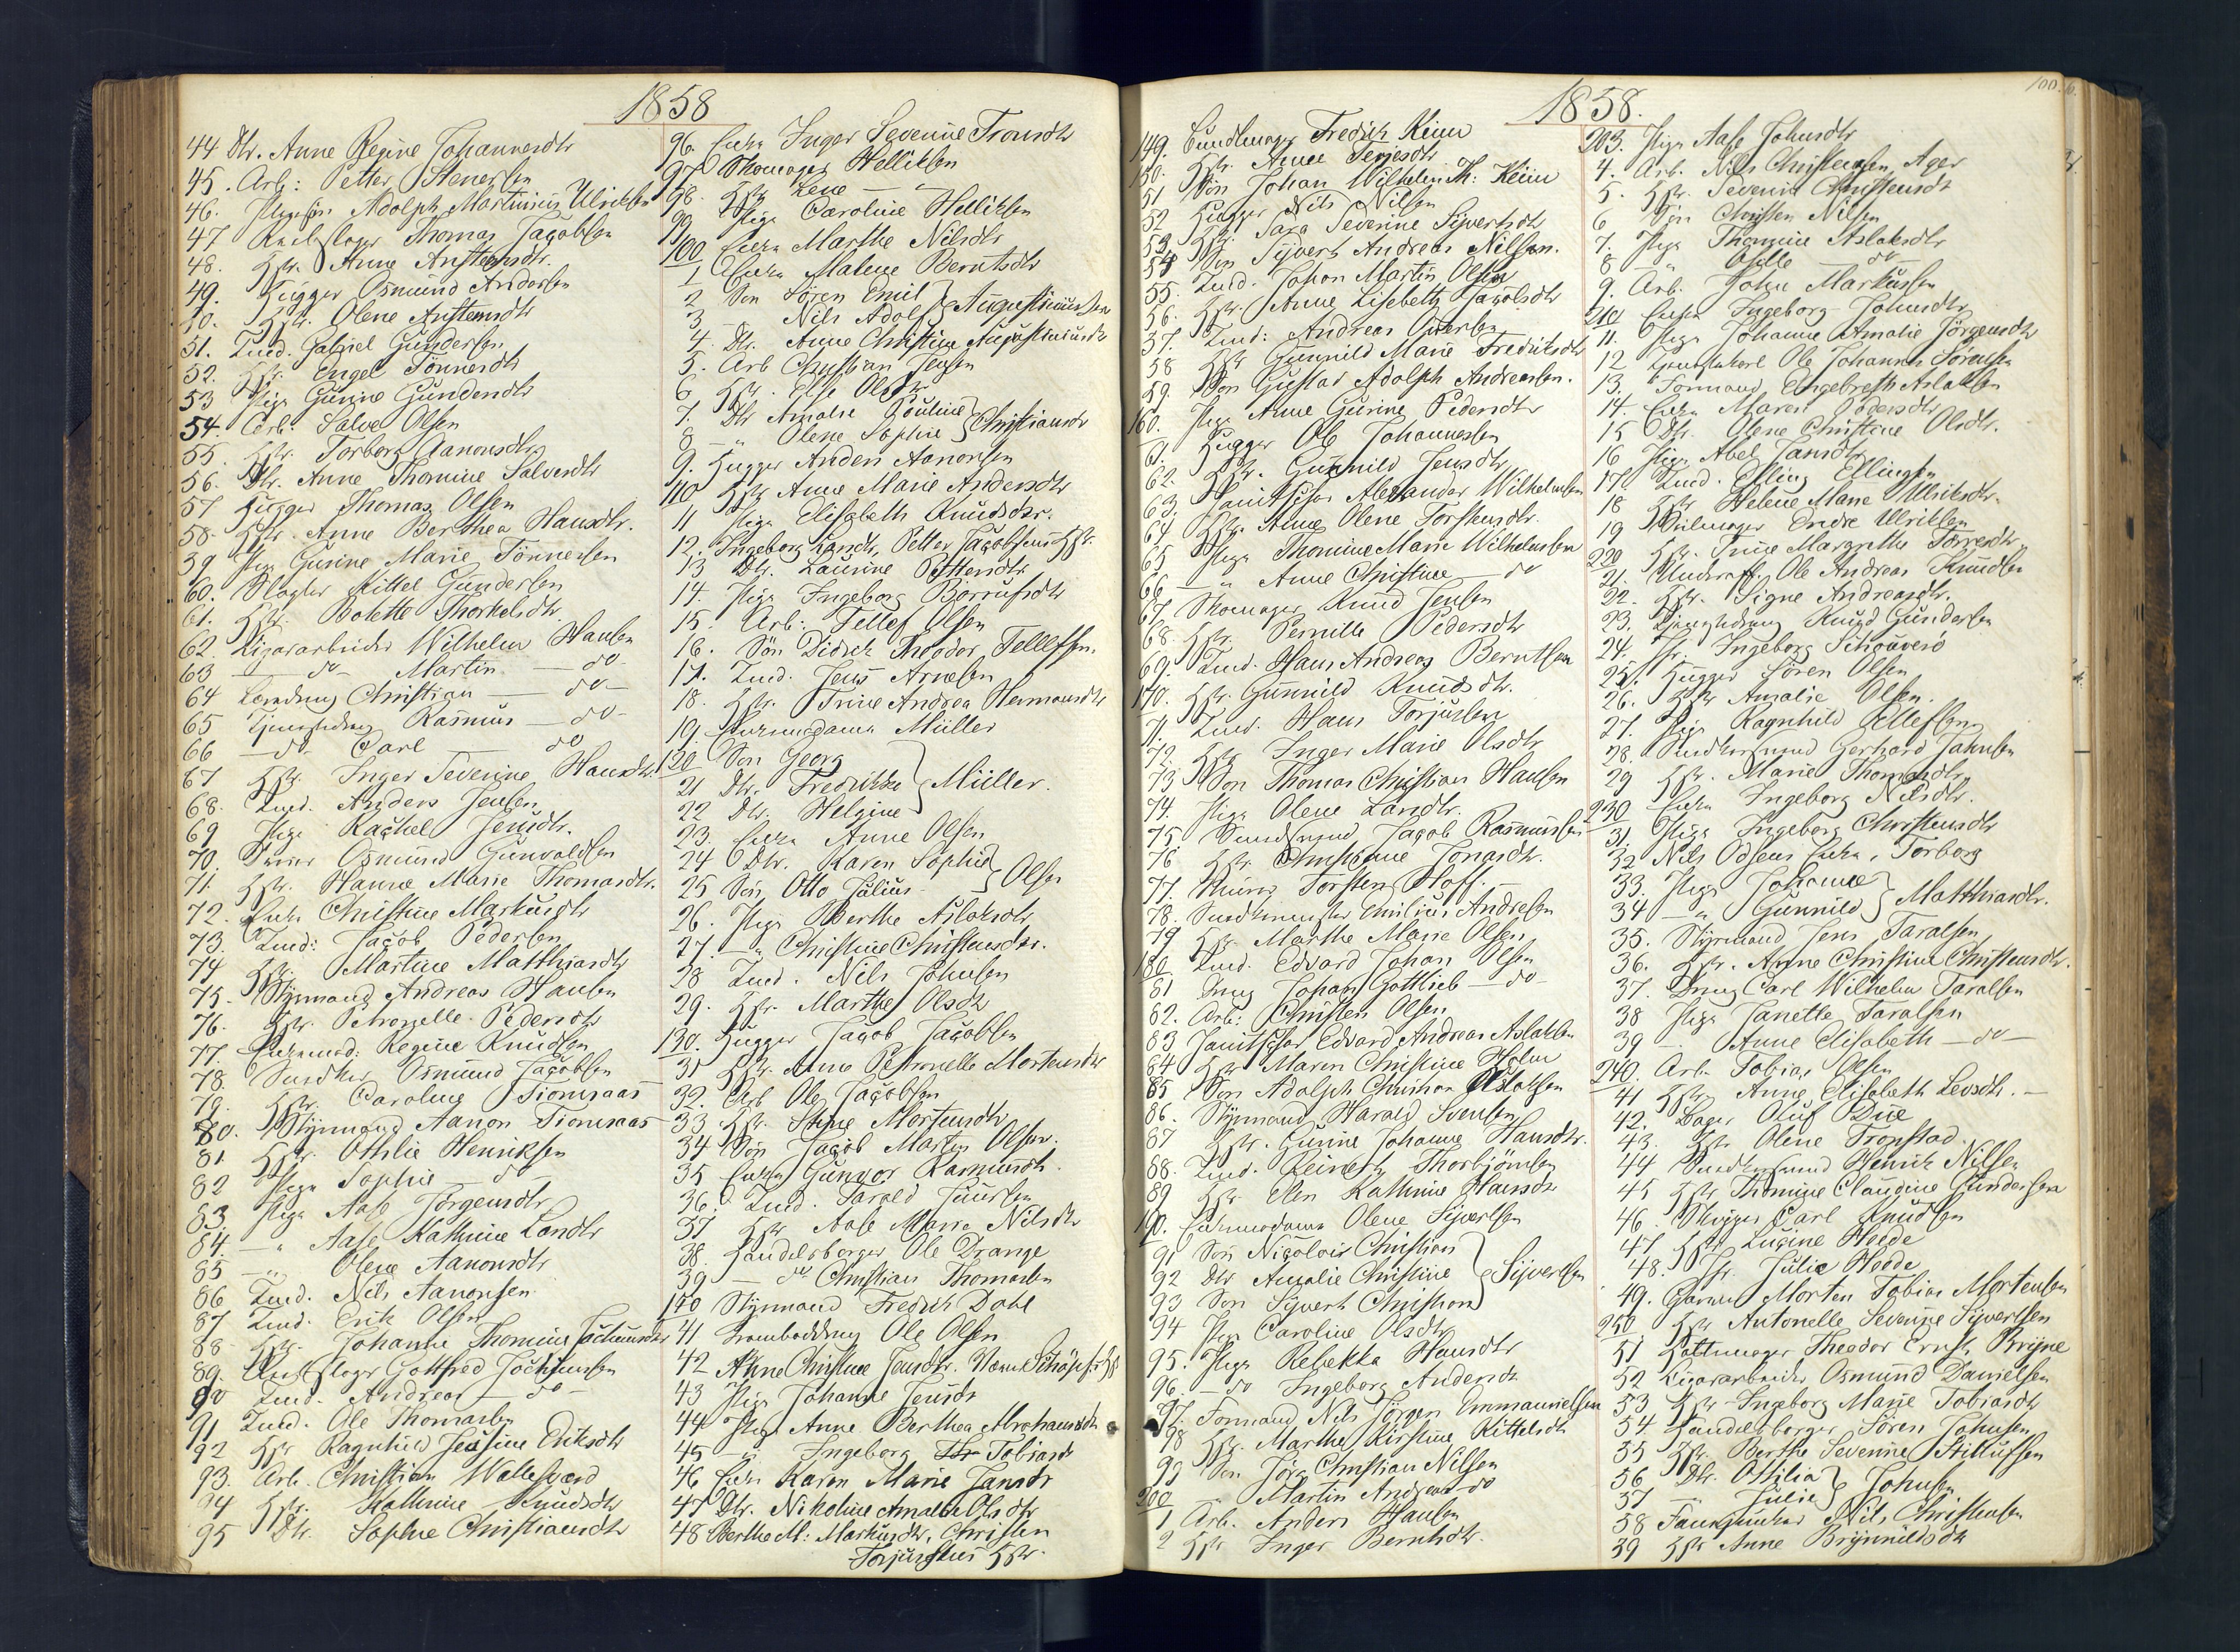 1858
44 Dtr. Anne Regine Johannesdtr
45. Arb: Petter Stenersen
46. Adolph Martinius Ulriksen
47 Thomas Jacobsen
48. Hstr. Anne Anstensdtr.
49. Hugger Osmund Andersen
50. Hstr. Olene Anstensdtr
51. Tmd. Gabriel Gundersen
52. Hstr. Engel Tönnesdtr
53 Pige Gurine Gundersdtr
54. Arb: Salve Olsen
55. Hstr. Torborg Aanonsdtr
56. Dtr. Anne Thomine Salvesdtr
57 Hugger Thomas Olsen
58. Hstr. Anne Berthea Hansdtr.
59 Pige Gurine Marie Tönnesen
60. Slagter Kittel Gundersen
61. Hstr. Bolette Thorkelsdtr
62. Cigararbeider Wilhelm Hansen
63 — do — Martin — do —
64 Christian — do —
65 Rasmus — do —
66 — do — Carl — do
67 Hstr. Inger Severine Hansdtr.
68. Tmd. Anders Jensen
69 Pige Rachel Jensdtr.
70. Osmund Gunvaldsen
71. Hstr. Hanne Marie Thomasdtr.
72. Enke Christine Markusdtr
73. Tmd: Jacob Pedersen
74 Hstr. Martine Matthiasdtr
75. Styrmand Andreas Hansen
76. Hstr. Petronelle Pedersdtr
77. Regine Knudsen
78. Snedker Osmund Jacobsen
79. Hstr. Caroline Fiomraas
80. Styrmand Aanon Fiomraas
81 Hstr. Othilie Henriksen
82 Pige Sophie — do —
83. Pige Aase Jörgensdtr
84. — " Aase Kathrine Larsdtr
85 — " Olene Aanonsdtr
86 Tmd. Nils Aanonsen
87 Tmd. Erik Olsen
88 Hstr. Johanne Thomine Jochumsdtr
89. Gottfred Jochumsen
90 Tmd. Andreas — do —
91 Tmd. Ole Thomasen
92 Hstr Ragnhild Jensine Eriksdtr
93. Arb. Christian Wallesværd
94 Hstr. Kathrine Knudsdtr
95 Dtr. Sophie Christiansdtr
96. Enke Inger Severine Tronsdtr
97 Skomager Helliksen
98. Hstr Lene — " —
99 Pige Caroline Helliksen
100 Enke Marthe Nilsdtr
1 Enke Malene Berntsdtr
2 Sön Sören Emil } Augustiniussen
3 — " Nils Adolf
4. Dtr. Anne Christine Augustiniusdtr
5. Arb Christian Jensen
6 Hstr. Else Olsdtr
7. Dtr Amalie Pouline } Christiansdtr
8 — " Olene Sophie
9. Hugger Anders Aanonsen
110 Hstr Anne Marie Andersdtr
11 Pige Elisabeth Knudsdtr.
12. Ingeborg Larsdtr, Petter Jacobsens Hstr.
13 Dtr. Laurine Pettersdtr
14. Pige Ingeborg Börrufsdtr
15. Arb: Tellef Olsen
16. Sön Didrik Theodor Tellefsen.
17. Tmd. Jens Arnesen
18. Hstr. Trine Andrea Hermansdtr
19. Müller
120 Sön Georg
21 Dtr. Fredrikke } Müller.
22 Dtr. Helgine
23. Enke Anne Olsen
24 Dtr. Karen Sophie } Olsen
25 Sön Otto Julius
26. Pige Berthe Aslaksdtr
27. — " Christine Christensdtr.
28 Tmd. Nils Johnsen
29. Hstr. Marthe Olsdtr
130. Hugger Jacob Jacobsen
31 Hstr. Anne Petronelle Mortensdtr
32. Arb Ole Jacobsen
33. Hstr. Stine Mortensdtr
34 Sön Jacob Martin Olsen.
35 Enke Gunvor Rasmusdtr.
36. Tmd. Harald Juursen
37 Hstr Aase Marie Nilsdtr
38. Handelsborger Ole Drange
39 — do Christian Thomasen
140 Styrmand Fredrik Dahl
41 Ole Olsen
42 Anne Christine Jensdtr.
43 Pige Johanne Jensdtr
44 Pige Anne Berthea Abrahamsdtr
45 — " Ingeborg Tobiasdtr
46 Enke Karen Marie Jansdtr
47 Dtr. Nikoline Amalie Olsdtr
48 Berthe M: Markusdtr, Christen
Torjussens Hstr.
1858.
149. Bundtmager Fredrik Keim
150. Hstr. Anne Terjesdtr
51 Sön Johan Wilhelm Th: Keim
52 Hugger Nils Nilsen
53. Hstr. Sara Severine Sijvertsdtr
54 Sön Sijvert Andreas Nilsen.
55. Tmd. Johan Martin Olsen
56. Hstr. Anne Lisebeth Jacobsdtr
57. Tmd: Andreas Omersen
58 Hstr Gunnild Marie Fredriksdtr
59. Sön Gustav Adolph Andreasen.
160. Pige Anne Gurine Pedersdtr
61. Hugger Ole Johannesen
62. Hstr. Gunnild Jensdtr
63. Janitschar Alexander Wilhelmsen
64 Hstr. Anne Olene Torstensdtr.
65 Pige Thomine Marie Wilhelmsen
66 — " Anne Christine — do
67 Skomager Knud Jensen
68. Hstr. Pernille Pedersdtr
69. Tmd. Hans Andreas Berntsen
170. Hstr. Gunnild Knudsdtr.
71. Tmd. Hans Torjusen
72. Hstr Inger Marie Olsdtr
73 Sön Thomas Christian Hansen
74. Pige Olene Larsdtr.
75. Jacob Rasmussen
76 Hstr. Christiane Jonasdtr.
77. Torsten Hoff. —
78. Snedkermester Emilius Andresen
79 Hstr. Marthe Marie Olsen
180 Tmd. Edvard Johan Olsen
81 Dreng Johan Gottlieb — do —
82. Arb: Christen Olsen
83 Janitschar Edvard Andreas Aslaksen
84 Hstr Maren Christine Holm
85 Sön Adolph Christian Aslaksen
86. Styrmand Harald Svensen
87 Hstr. Gurine Johanne Hansdtr.
88. Tmd. Reinert Thorbjörnsen
89 Hstr Elen Kathrine Hansdtr
190. Olene Sijvertsen
91 Sön Nicolai Christian
92 Dtr Amalie Christine } Sijvertsen
93 Sön Sijvert Christian
94 Pige Caroline Olsdtr
95. Pige Rebekka Hansdtr
96. — do Ingeborg Andersdtr
97. Formand Nils Jörgen Emmanuelsen
98 Hstr. Marthe Kirstine Kittelsdtr
99 Sön Jörg. Christian Nilsen
200 — " Martin Andreas do
1 Arb. Anders Hansen
2 Hstr Inger Berntsdtr.
203. Pige Aase Johnsdtr
4. Arb. Nils Christensen Ager
5. Hstr. Severine Christensdtr
6 Sön Christen Nilsen
7. Pige Thomine Aslaksdtr
8 — " Helle — do —
9. Arb. John Markussen
210 Enke Ingeborg Johnsdtr
11. Pige Johanne Amalie Jörgensdtr
12 Ole Johannes Sörensen
13. Formand Engebreth Aslaksen
14. Enke Maren Pedersdtr
15 Dtr. Olene Christine Olsdtr.
16 Pige Abel Jansdtr
17 Tmd. Elling Ellingsen
18 Hstr Helene Marie Ulriksdtr.
19 Endre Ulriksen
220 Hstr. Trine Margrethe Torresdtr.
21. Ole Andreas Knudsen
22. Hstr. Signe Andreasdtr.
23. Knud Gundersen
24. Jfr. Ingeborg Schouverö
25. Hugger Sören Olsen
26. Hstr Amalie Olsen.
27. Pige Ragnhild Tellefsen
28. Snedkersvend Gerhard Jahnsen
29 Hstr. Marie Thomasdtr
230 Enke Ingeborg Nilsdtr.
31. Pige Ingeborg Christensdtr
32 Nils Odsens Enke, Torborg
33. Pige Johanne } Matthiasdtr.
34 — " Gunnild
35. Styrmand Jens Taralsen
36. Hstr. Anne Christine Christensdtr.
37. Dreng Carl Wilhelm Taralsen
38 Pige Janette Taralsen
39 — " Anne Elisabeth — do —
240. Arb. Tobias Olsen
41 Hstr Anne Elisabeth Levsdtr. —
42. Bager Oluf Due
43. Hstr Olene Tropstad.
44 Snedkersvend Henrik Nilsen
45 Hstr Thomine Claudine Gundersen
46. Carl Knudsen
47 Hstr Lucine Heede
48. Jfr. Julie Heede
49. Garver Morten Tobias Mortensen
250 Hstr Antonelle Severine Sijvertsen
51 Theodor Ernst Bryne
52 Cigararbeider Osmund Danielsen
53 Hstr Ingeborg Marie Tobiasdtr
54. Handelsborger Sören Johnsen
55 Hstr. Berthe Severine Stillufsen
56 Dtr. Othilia } Johnsen
57 — " Julie
58 Nils Christensen
59 Hstr Anne Brynnildsdtr